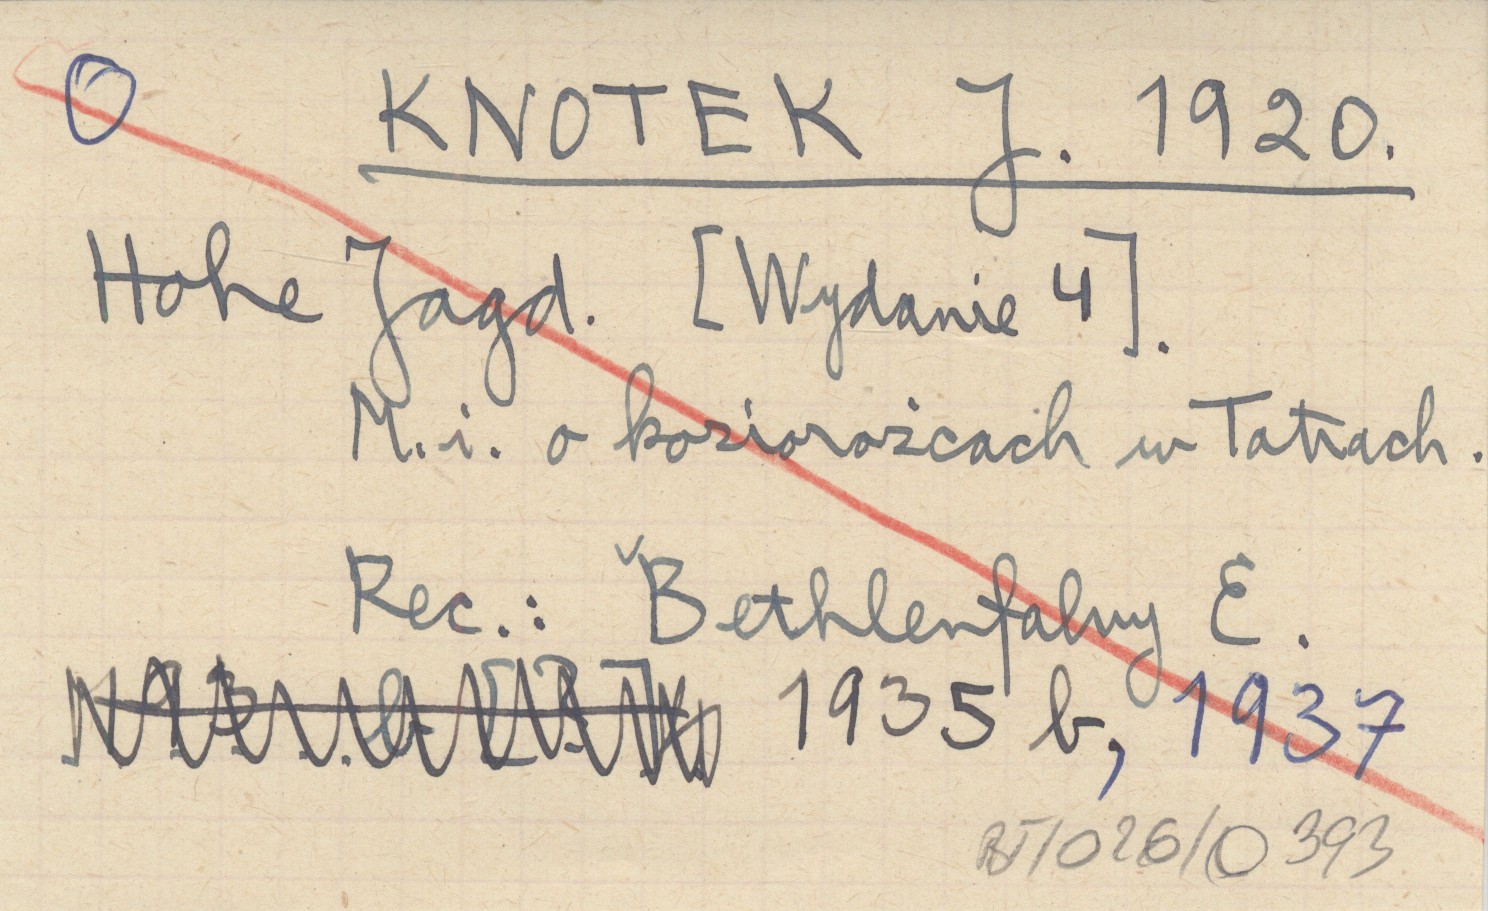 O KNOTEK J. 1920.
Hohe Jagd. [Wydanie 4].
M.i. o koziorożcach w Tatrach.
Rec.: Bethlenfalvy E.
1935 b, 1937
BT/026/O 393